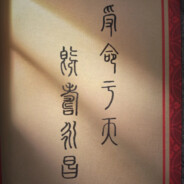 受命于天
既壽永昌